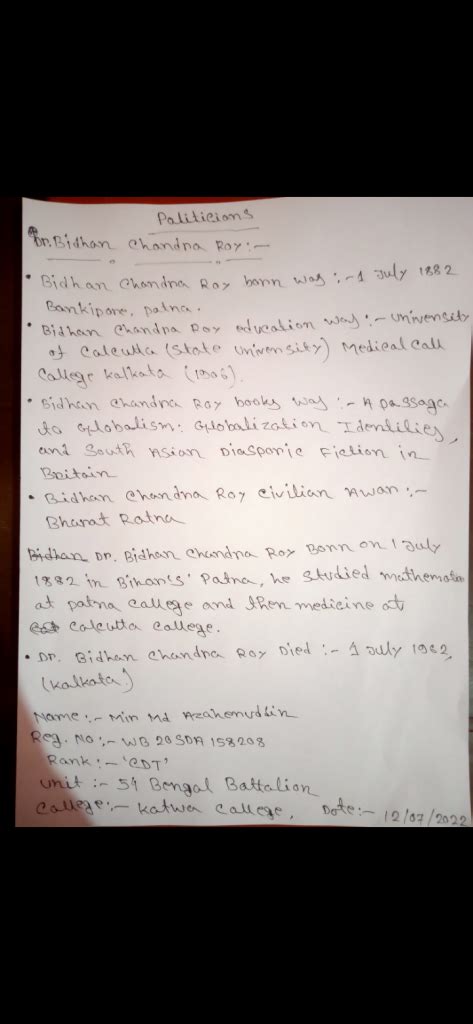 Politicians
Dr. Bidhan Chandra Roy :-
• Bidhan Chandra Roy born was :- 1 July 1882
Bankipore, patna.
• Bidhan Chandra Roy education was :- university
of Calcutta (State University) Medical Call
College Kalkata (1906).
• Bidhan Chandra Roy books was :- A passaga
to Globalism: Globalization Identities,
and South Asian Diasporic Fiction in
Britain
• Bidhan Chandra Roy Civilian Awar :-
Bharat Ratna
Bidhan Dr. Bidhan Chandra Roy Born on 1 July
1882 in Bihar's' Patna, he studied mathematin
at patna college and then medicine at
Calcutta College.
• Dr. Bidhan Chandra Roy Died :- 1 July 1962,
(Kalkata)
Name :- Mir Md Azaheruddin
Reg. No :- WB 20 SDA 158208
Rank :- 'CDT'
Unit :- 54 Bengal Battalion
College :- Katwa College, Date :- 12/07/2022